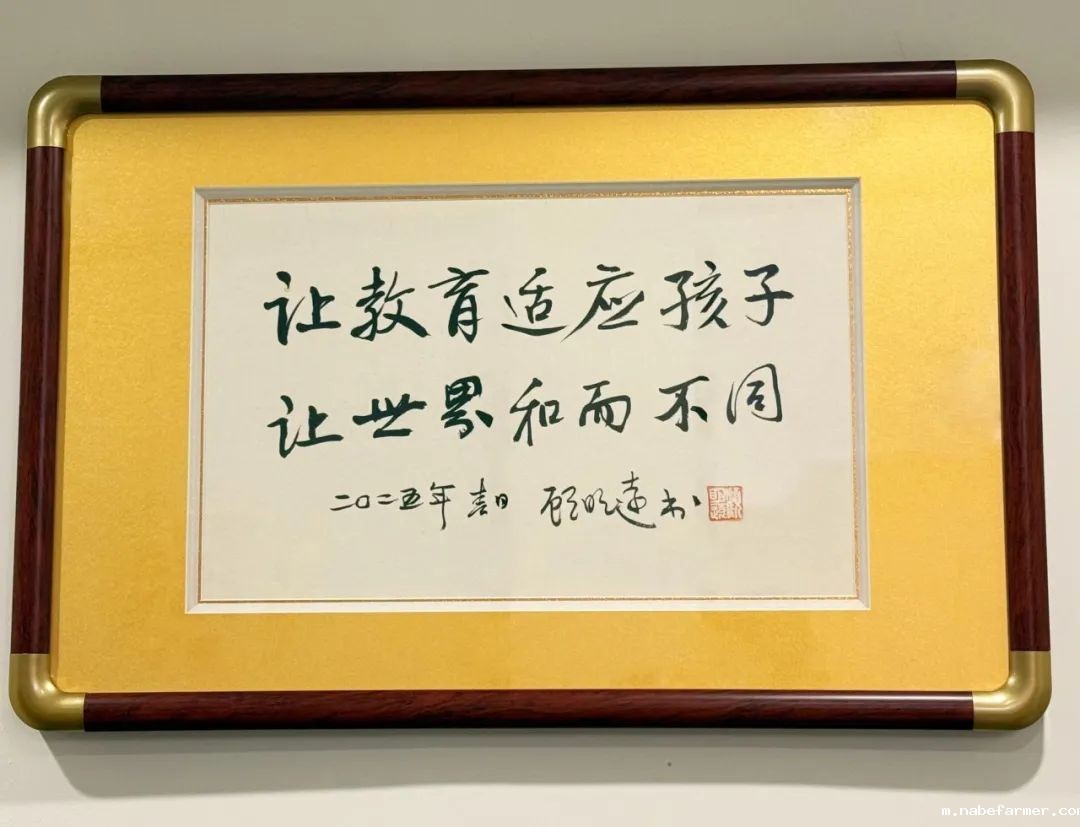 让教育适应孩子
让世界和而不同
二〇二五年春日 顾明远书
m.nabefarmer.com